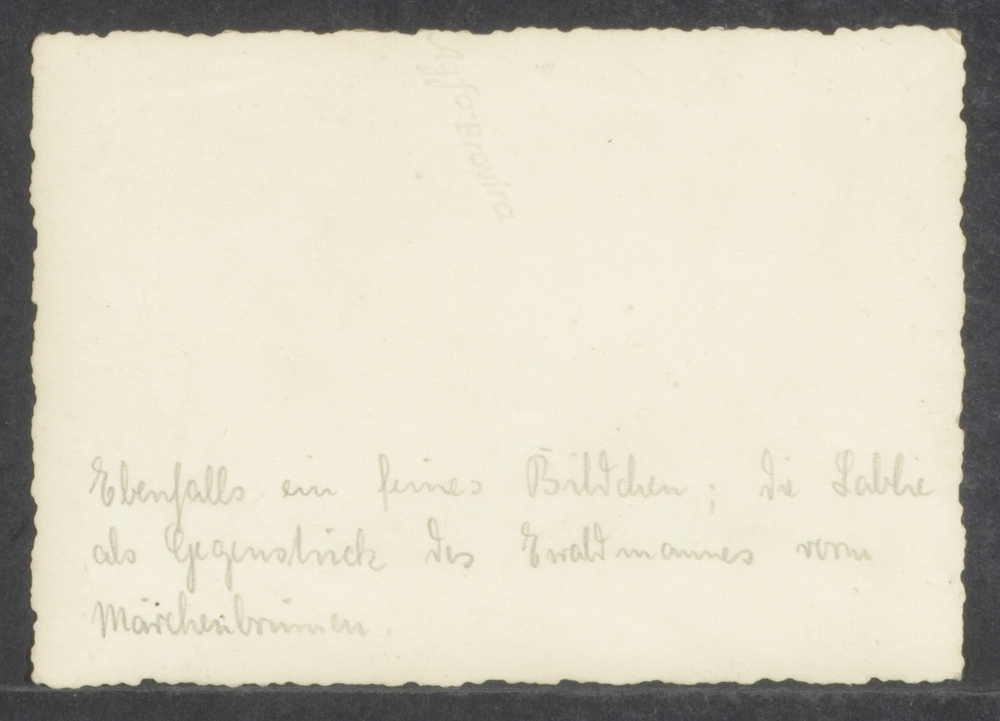 Agfa Brovira
Ebenfalls ein feines Bildchen; die Lablie
als Gegenstück des Ewaldmannes vorm
Märchenbrunnen.